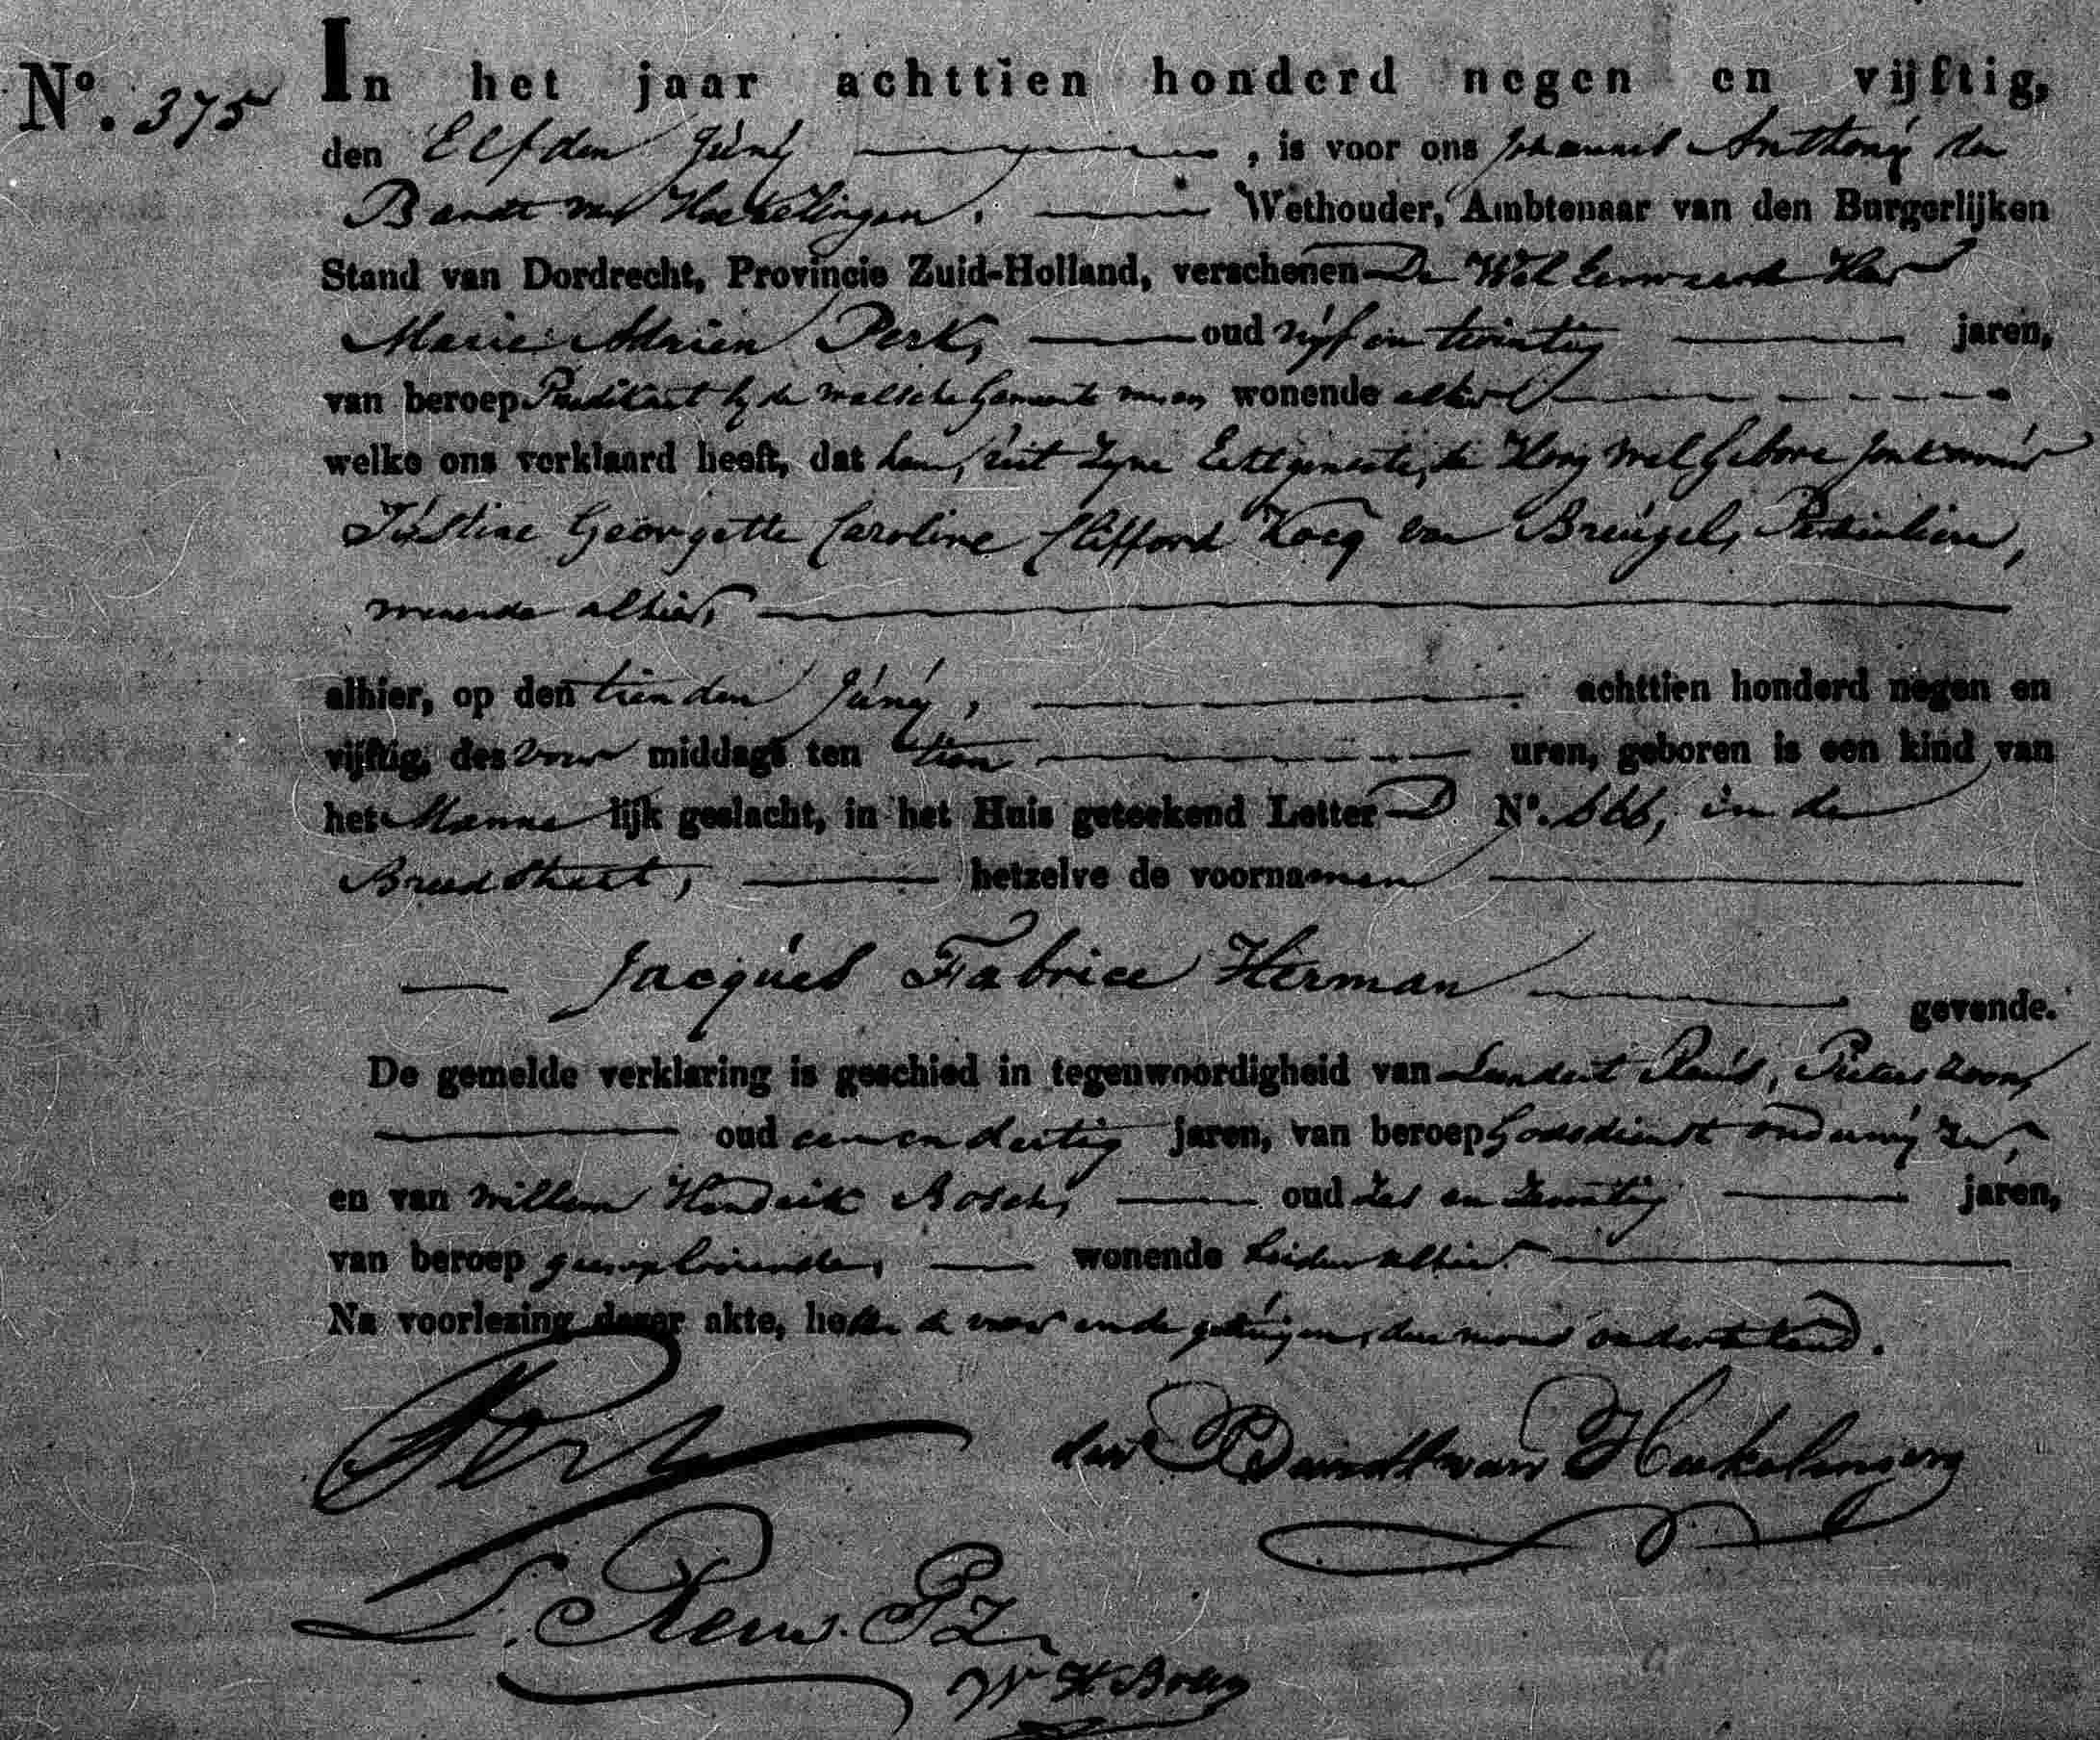 No. 375
In het jaar achttien honderd negen en vijftig,
den Elfden Junij , is voor ons Johannes Anthonij den
Bandt van Hackelingen, Wethouder, Ambtenaar van den Burgerlijken
Stand van Dordrecht, Provincie Zuid-Holland, verschenen De Wel Eerwaarde Heer
Marie Adrien Perk, oud vijf en twintig jaren,
van beroep Predikant bij de Walsche Gemeente wonende alhier
welke ons verklaard heeft, dat hem, uit zijne Echtgenoote, de Hoog Wel Geboren Jonkvrouw
Justine Georgette Caroline Clifford Kocq van Breugel, Particuliere,
wonende alhier,
alhier, op den tienden Junij, achttien honderd negen en
vijftig, des voor middags ten tien uren, geboren is een kind van
het Manne lijk geslacht, in het Huis geteekend Letter D No. 566, in de
Breedstraat, hetzelve de voornamen
Jacques Fabrice Herman gevende.
De gemelde verklaring is geschied in tegenwoordigheid van Leendert Reus, Pieterszoon,
oud een en dertig jaren, van beroep Godsdienst onderwijzer,
en van Willem Hendrik Bosch, oud zes en twintig jaren,
van beroep geemploieerde, wonende beiden alhier
Na voorlezing dezer akte, hebben de vader en de getuigen, deze met ons onderteekend.
Perk den Bandt van Hackelingen
L. Reus. Pz
W H Bosch